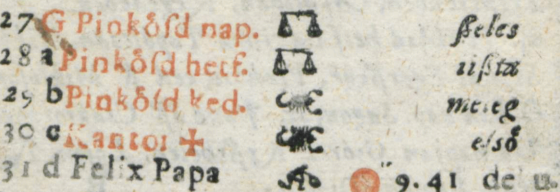 27 G Pinkősd nap. ßeles
28 a Pinkősd hetf. tißta
29 b Pinkősd ked. meleg
30 c Kantor ✠ eſső
31 d Felix Papa 9. 41 de